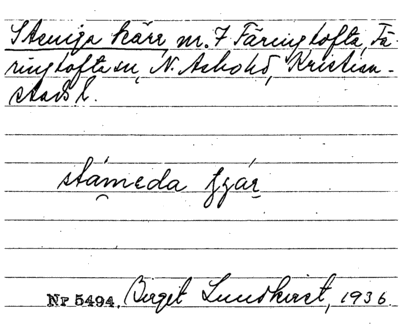 Steniga kärr, nr. 7 Färingtofta, Fä-
ringtofta sn, N. Åsbo hd, Kristian-
stads l.
stámeda
Nr 5494. Birgit Lundkvist, 1936.